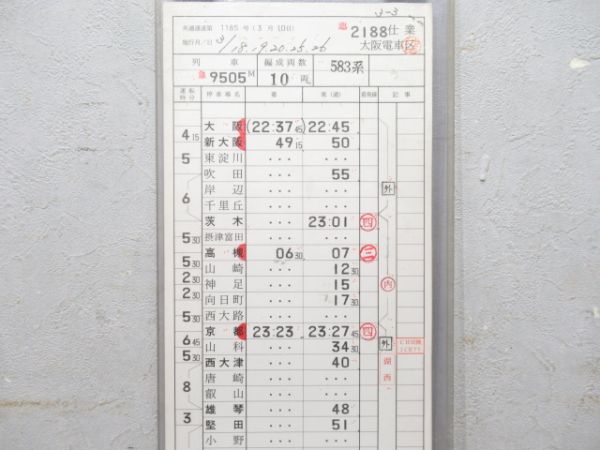 3-3
大鉄運達第 1185 号 (3 月 10日)
施行月/日 3/18.19.20.25.26
臨 2188 仕業
大阪電車区
列車 編成両数
臨 9505M 10両 583系
運転時分 停車場名 着 発(通) 着発線 記事
大阪 (22:37 45) 22:45
4 15 新大阪 49 15 50
5 東淀川 ... ...
吹田 ... 55
6 岸辺 ... ... 外
千里丘 ... ...
茨木 ... 23:01 四
5 30 摂津富田 ... ...
高槻 06 30 07 三
5 30 山崎 ... 12 30
2 30 神足 ... 15 内
2 30 向日町 ... 17 30
5 30 西大路 ... ...
京都 23:23 23:27 45 四
6 45 山科 ... 34 30 外
5 30 西大津 ... 40 湖西
8 唐崎 ... ...
叡山 ... ...
雄琴 ... 48
3 堅田 ... 51
小野 ... ...